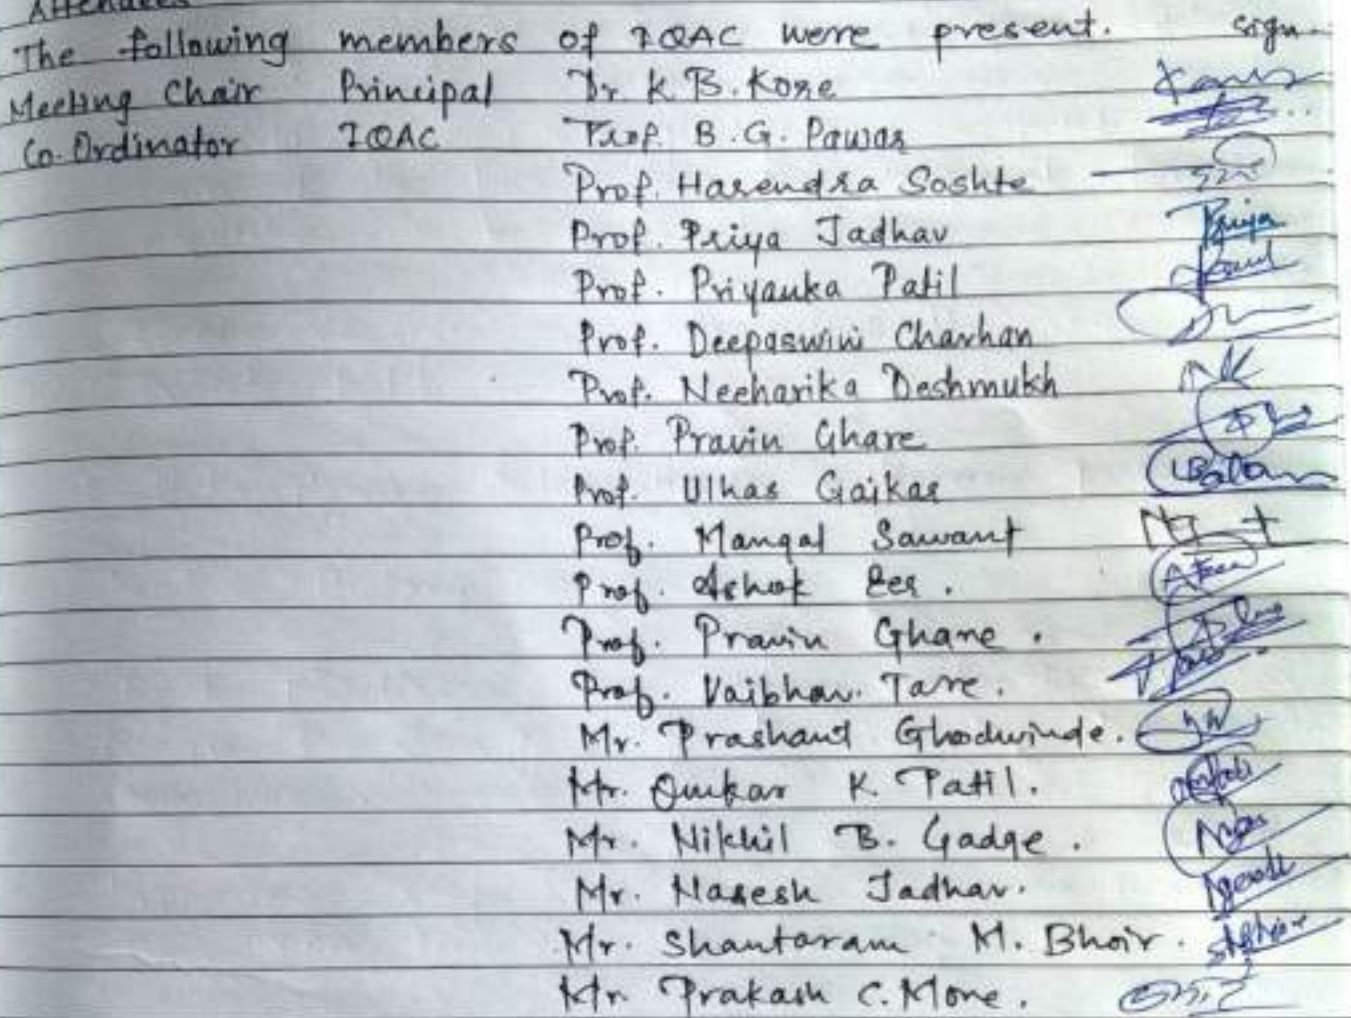 Attendees
The following members of IQAC were present. sign.
Meeting Chair Principal Dr. K. B. Kore
Co-Ordinator IQAC Prof. B. G. Pawar
Prof. Harendra Soshte
Prof. Priya Jadhav Priya
Prof. Priyanka Patil
Prof. Deepaswini Chavhan
Prof. Neeharika Deshmukh
Prof. Pravin Ghare
Prof. Ulhas Gaikar
Prof. Mangal Sawant
Prof. Ashok Eer.
Prof. Pravin Ghane.
Prof. Vaibhav. Tare.
Mr. Prashant Ghodwinde.
Mr. Omkar K. Patil.
Mr. Nikhil B. Gadge.
Mr. Naresh Jadhav.
Mr. Shantaram M. Bhoir.
Mr. Prakash C. More.